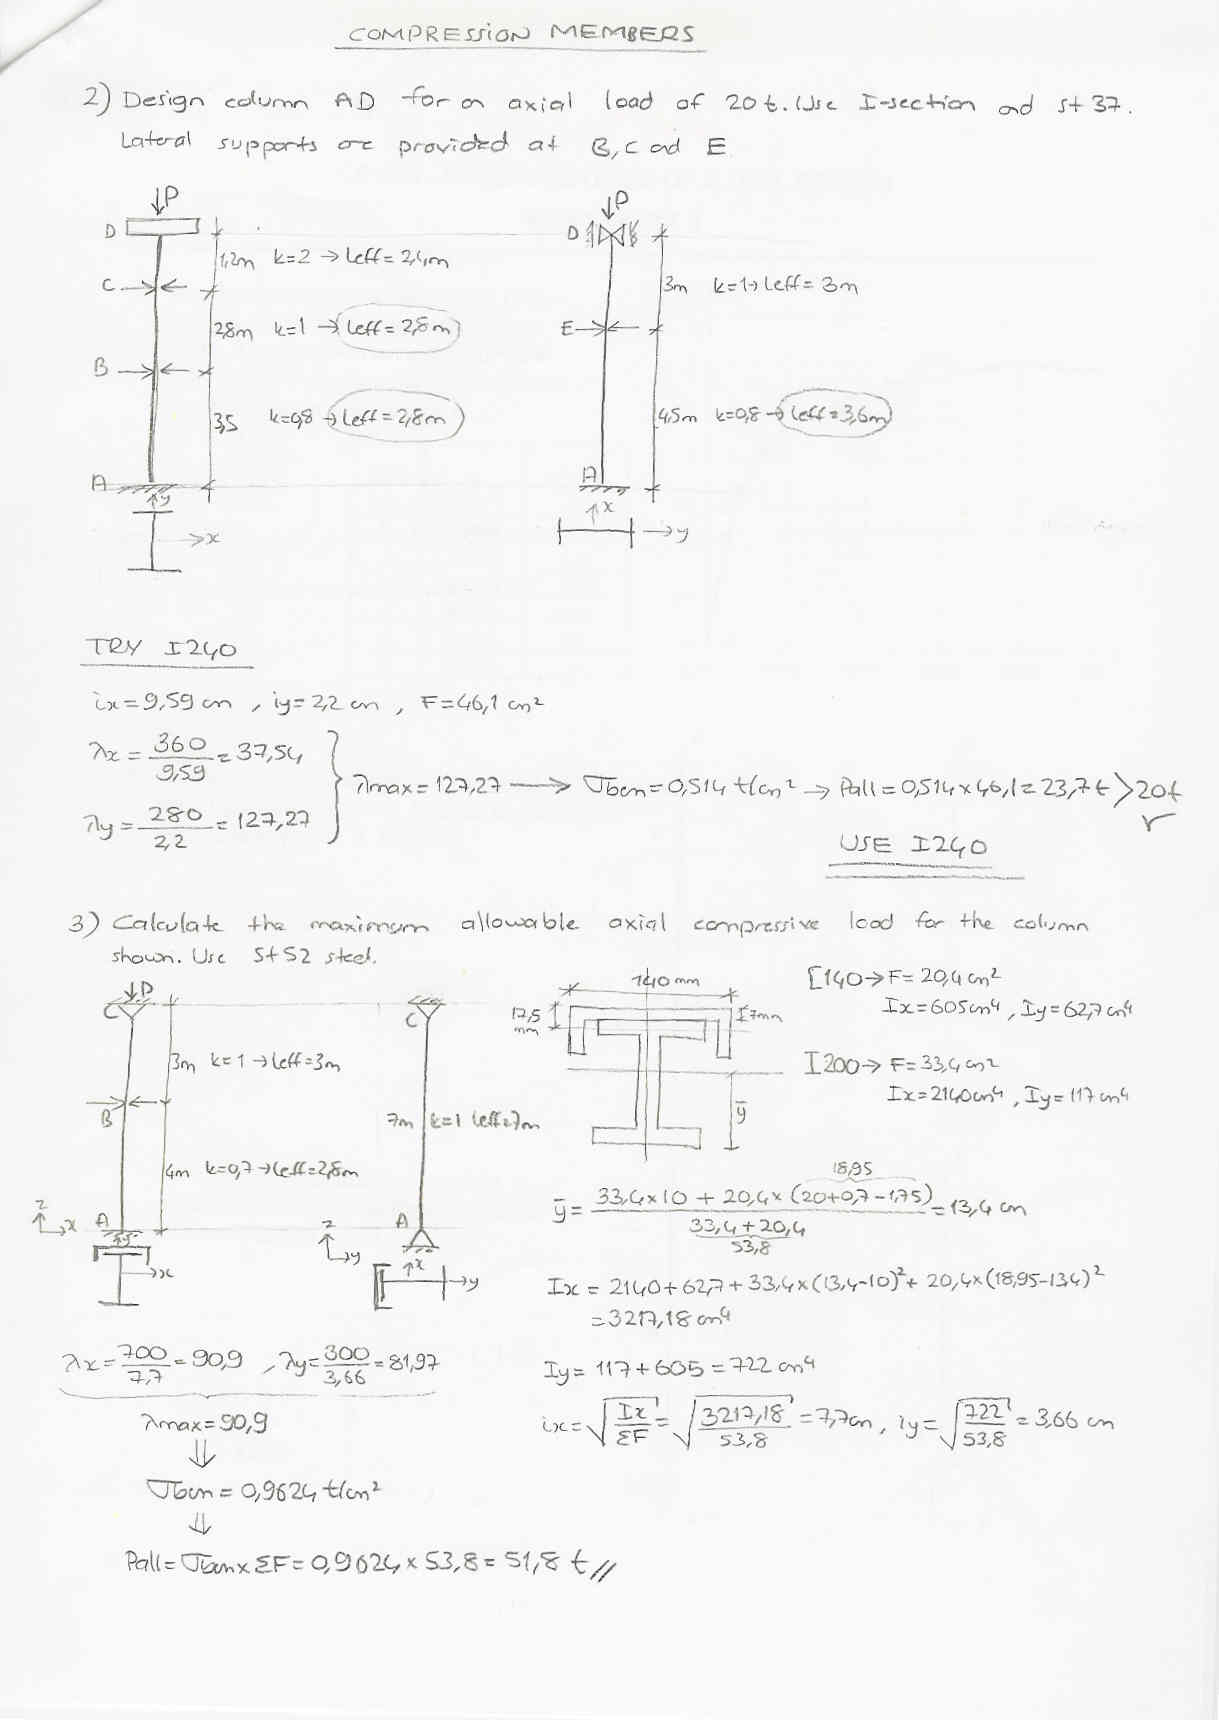 COMPRESSION MEMBERS
2) Design column AD for an axial load of 20t. Use I-section and st 37.
Lateral supports are provided at B, C and E
↓P
D
1,2m k=2 → leff = 2,4m
C
2,8m k=1 → leff = 2,8m
B
3,5 k=0,8 → leff = 2,8m
A
y
x
↓P
D
3m k=1 → leff = 3m
E
4.5m k=0,8 → leff = 3,6m
A
x
y
TRY I240
ix = 9,59 cm , iy = 2,2 cm , F = 46,1 cm²
λx = 360/9,59 = 37,54
λy = 280/2,2 = 127,27
λmax = 127,27 → σbem = 0,514 t/cm² → Pall = 0,514 x 46,1 = 23,7 t > 20t ✓
USE I240
3) Calculate the maximum allowable axial compressive load for the column
shown. Use St52 steel.
↓P
C
3m k=1 → leff = 3m
B
4m k=0,7 → leff = 2,8m
z
x
A
y
x
C
7m k=1 leff = 7m
A
z
y
x
y
140 mm
17,5 mm
7mm
ȳ
[140 → F = 20,4 cm²
Ix = 605 cm⁴ , Iy = 62,7 cm⁴
I200 → F = 33,4 cm²
Ix = 2140 cm⁴ , Iy = 117 cm⁴
18,95
ȳ = 33,4 x 10 + 20,4 x (20 + 0,7 - 1,75) / 33,4 + 20,4 = 13,4 cm
53,8
Ix = 2140 + 62,7 + 33,4 x (13,4 - 10)² + 20,4 x (18,95 - 13,4)²
= 3217,18 cm⁴
Iy = 117 + 605 = 722 cm⁴
ix = √(Ix/ΣF) = √(3217,18/53,8) = 7,7 cm , iy = √(722/53,8) = 3,66 cm
λx = 700/7,7 = 90,9 , λy = 300/3,66 = 81,97
λmax = 90,9
⇓
σbem = 0,9624 t/cm²
⇓
Pall = σbem x ΣF = 0,9624 x 53,8 = 51,8 t //